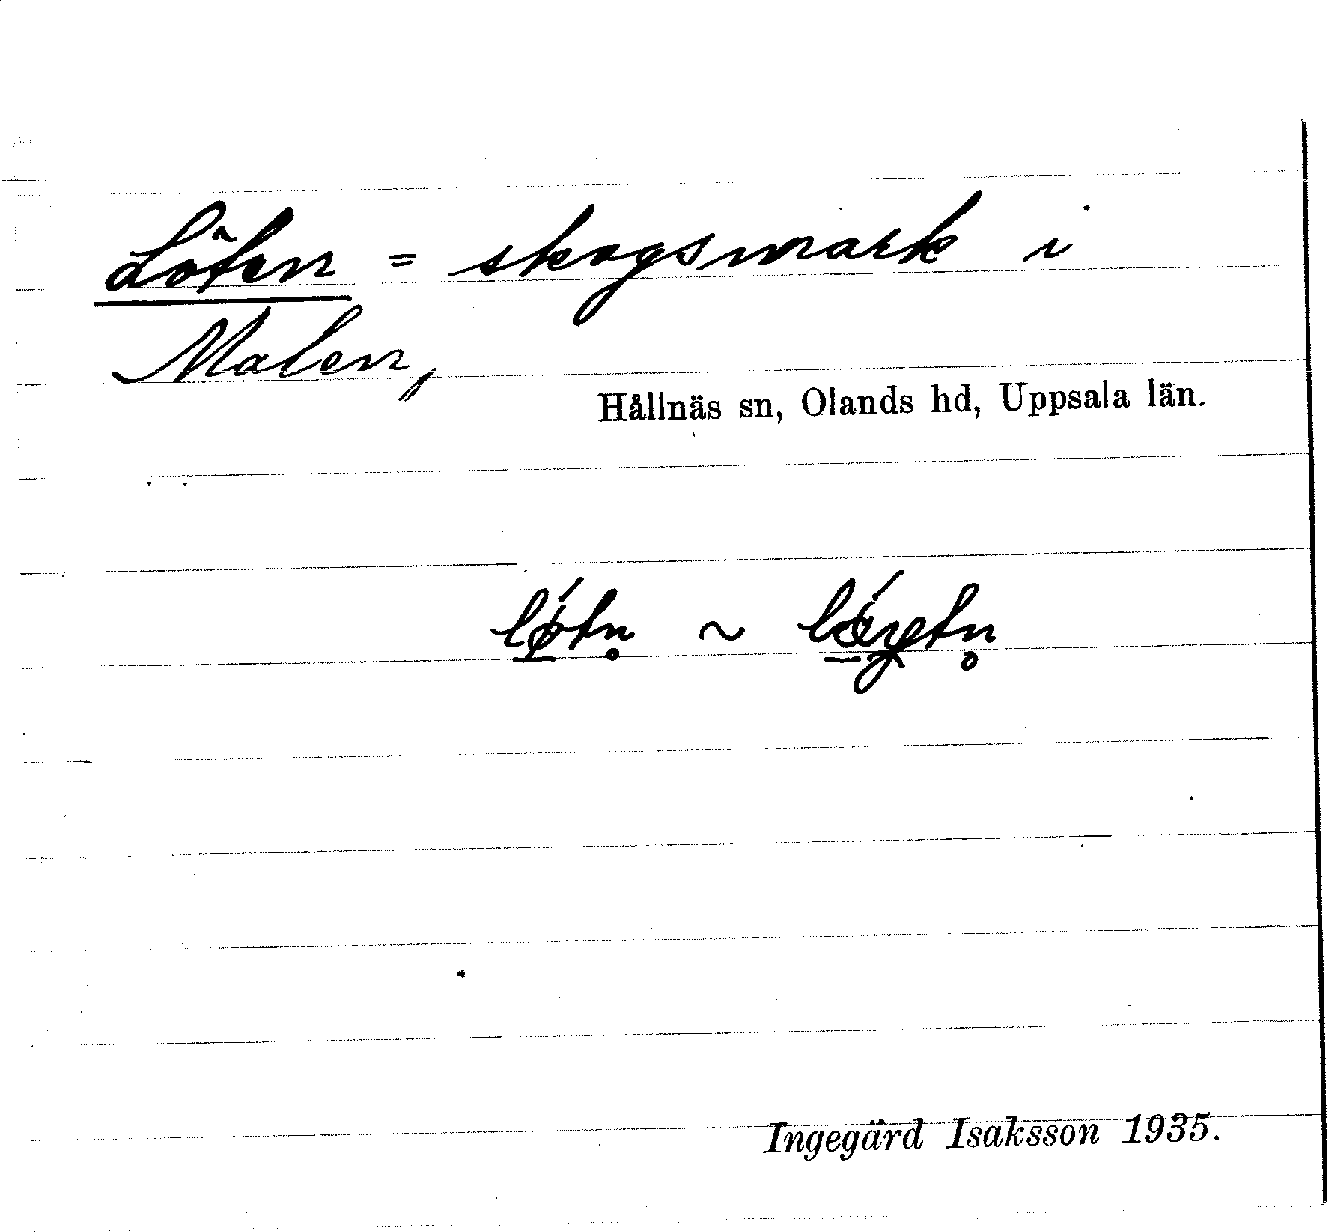 Löten = skogsmark i
Malen,
Hållnäs sn, Olands hd, Uppsala län.
Ingegärd Isaksson 1935.